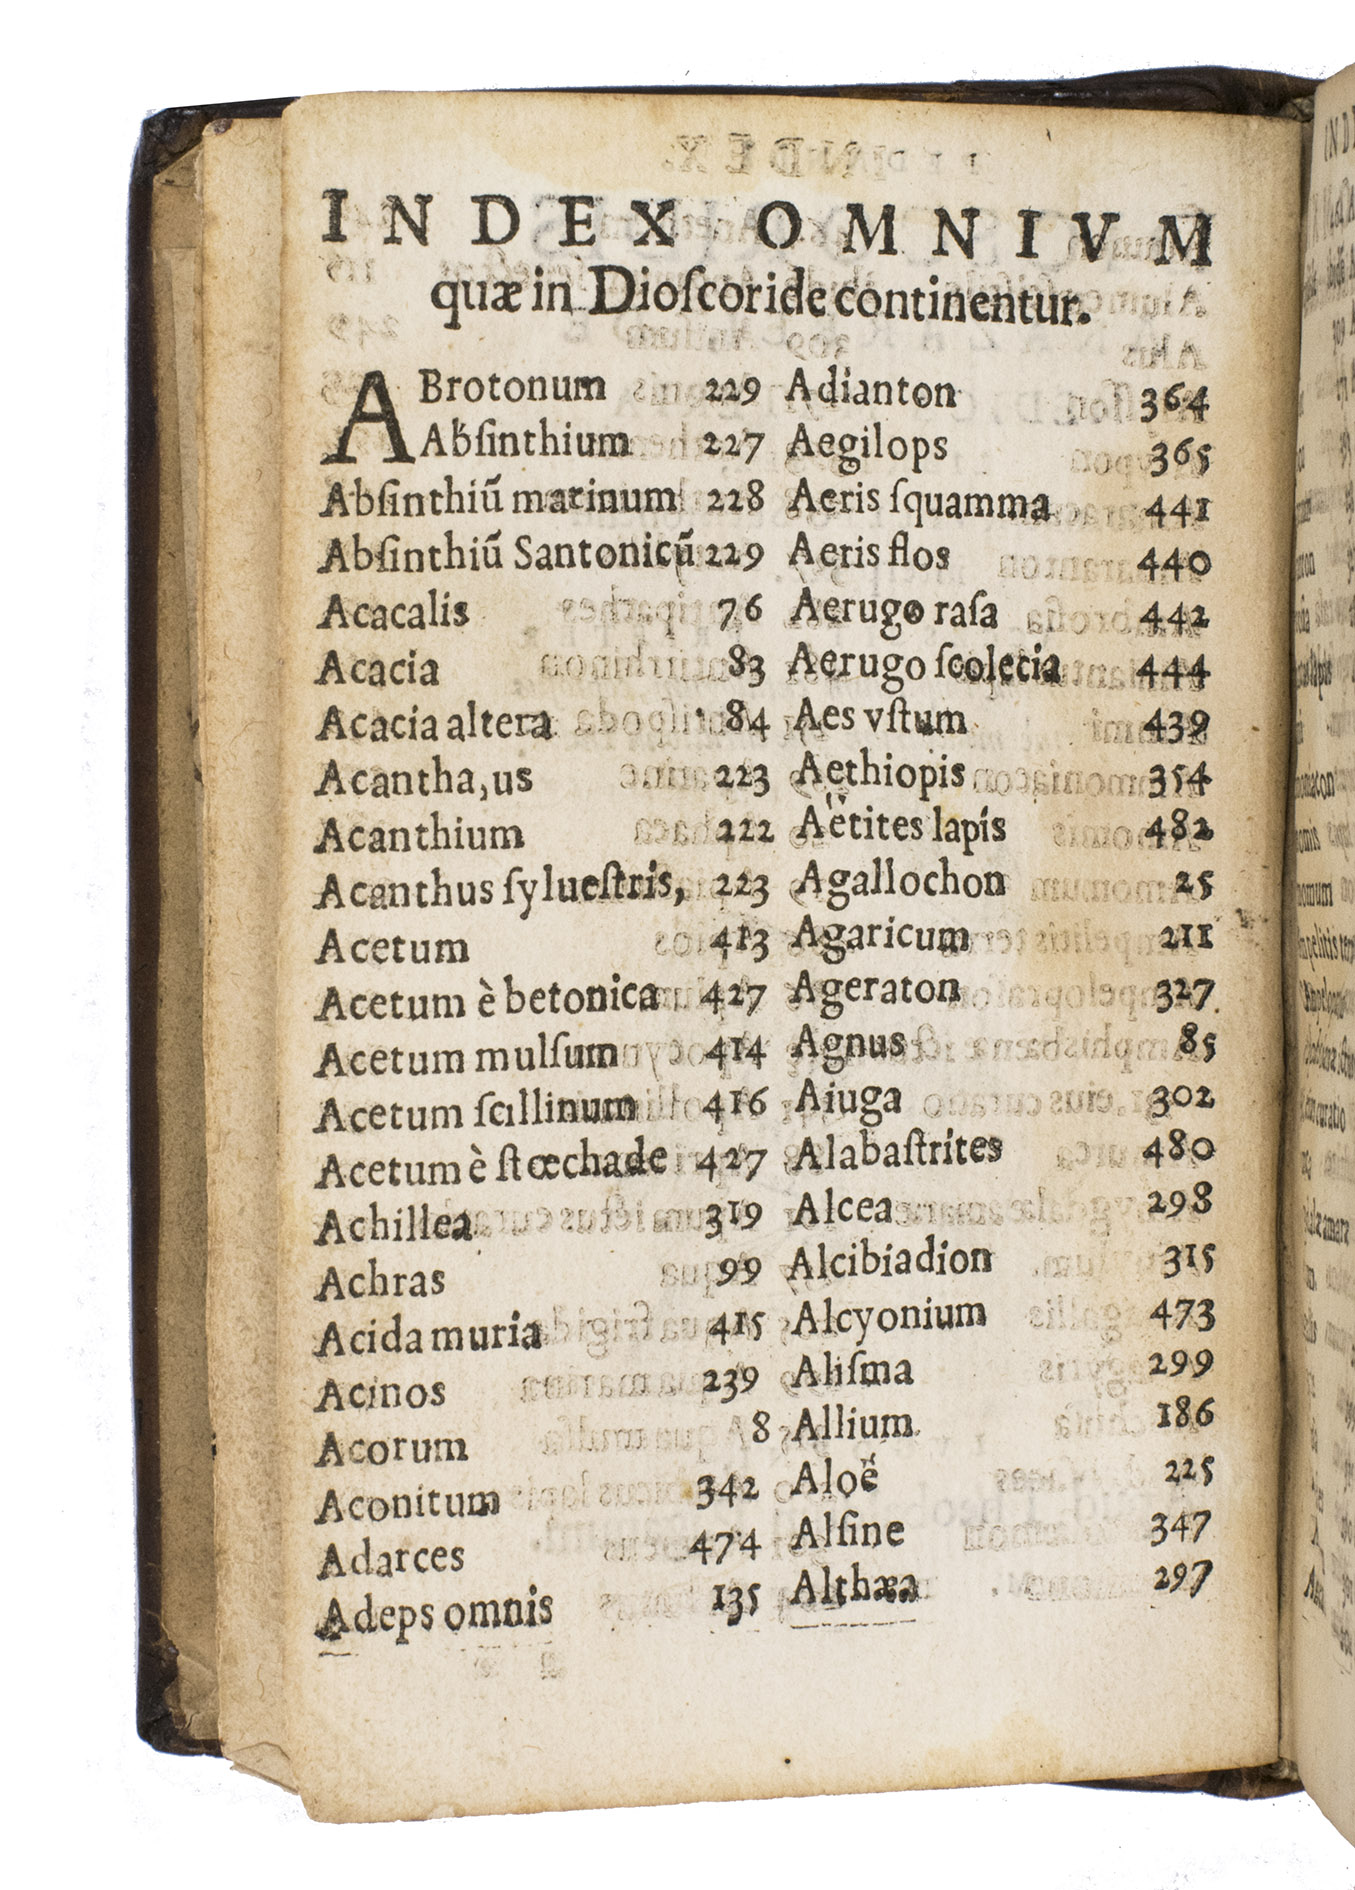 INDEX OMNIVM
quæ in Dioſcoride continentur.
ABrotonum 229
Abſinthium 227
Abſinthiũ marinum 228
Abſinthiũ Santonicũ 229
Acacalis 76
Acacia 83
Acacia altera 84
Acantha, us 223
Acanthium 222
Acanthus ſylueſtris, 223
Acetum 413
Acetum è betonica 427
Acetum mulſum 414
Acetum ſcillinum 416
Acetum è ſtœchade 427
Achillea 319
Achras 99
Acida muria 415
Acinos 239
Acorum 8
Aconitum 342
Adarces 474
Adeps omnis 135
Adianton 364
Aegilops 365
Aeris ſquamma 441
Aeris flos 440
Aerugo raſa 442
Aerugo ſcolecia 444
Aes vſtum 439
Aethiopis 354
Aëtites lapis 482
Agallochon 25
Agaricum 211
Ageraton 327
Agnus 85
Aiuga 302
Alabaſtrites 480
Alcea 298
Alcibiadion 315
Alcyonium 473
Aliſma 299
Allium 186
Aloë 225
Alſine 347
Althæa 297